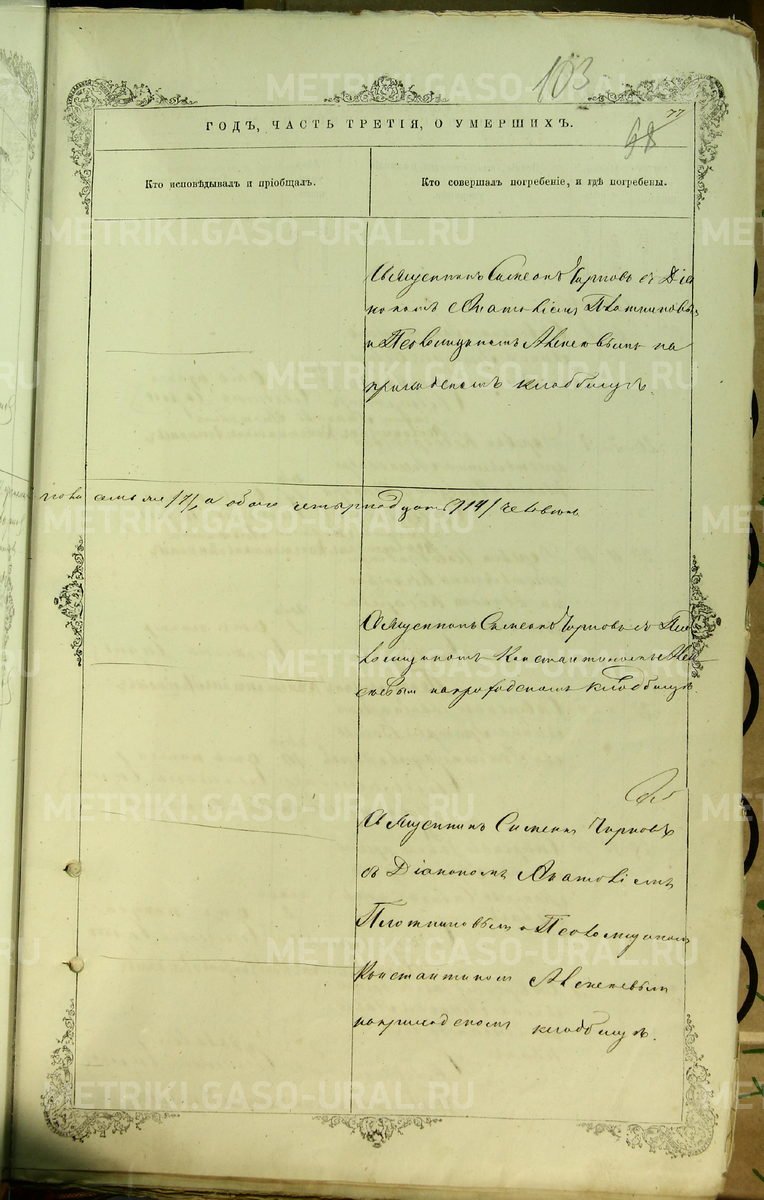 103
77
68
ГОДЪ, ЧАСТЬ ТРЕТІЯ, О УМЕРШИХЪ.
Кто исповѣдывалъ и пріобщалъ.
Кто совершалъ погребеніе, и гдѣ погребены.
Священникъ Симеонъ Чирковъ съ Діа
кономъ Плотниковы
и Псаломщикомъ на
приходскомъ кладбищѣ.
/7/, а обоего четырнадцать /14/ человѣкъ
Священникъ Симеонъ Чирковъ съ Пса
ломщикомъ Константиномъ
на приходскомъ кладбищѣ
Священникъ Симеонъ Чирковъ
съ Діакономъ
Плотниковымъ и Псаломщикомъ
Константиномъ
на приходскомъ кладбищѣ.
METRIKI.GASO-URAL.RU